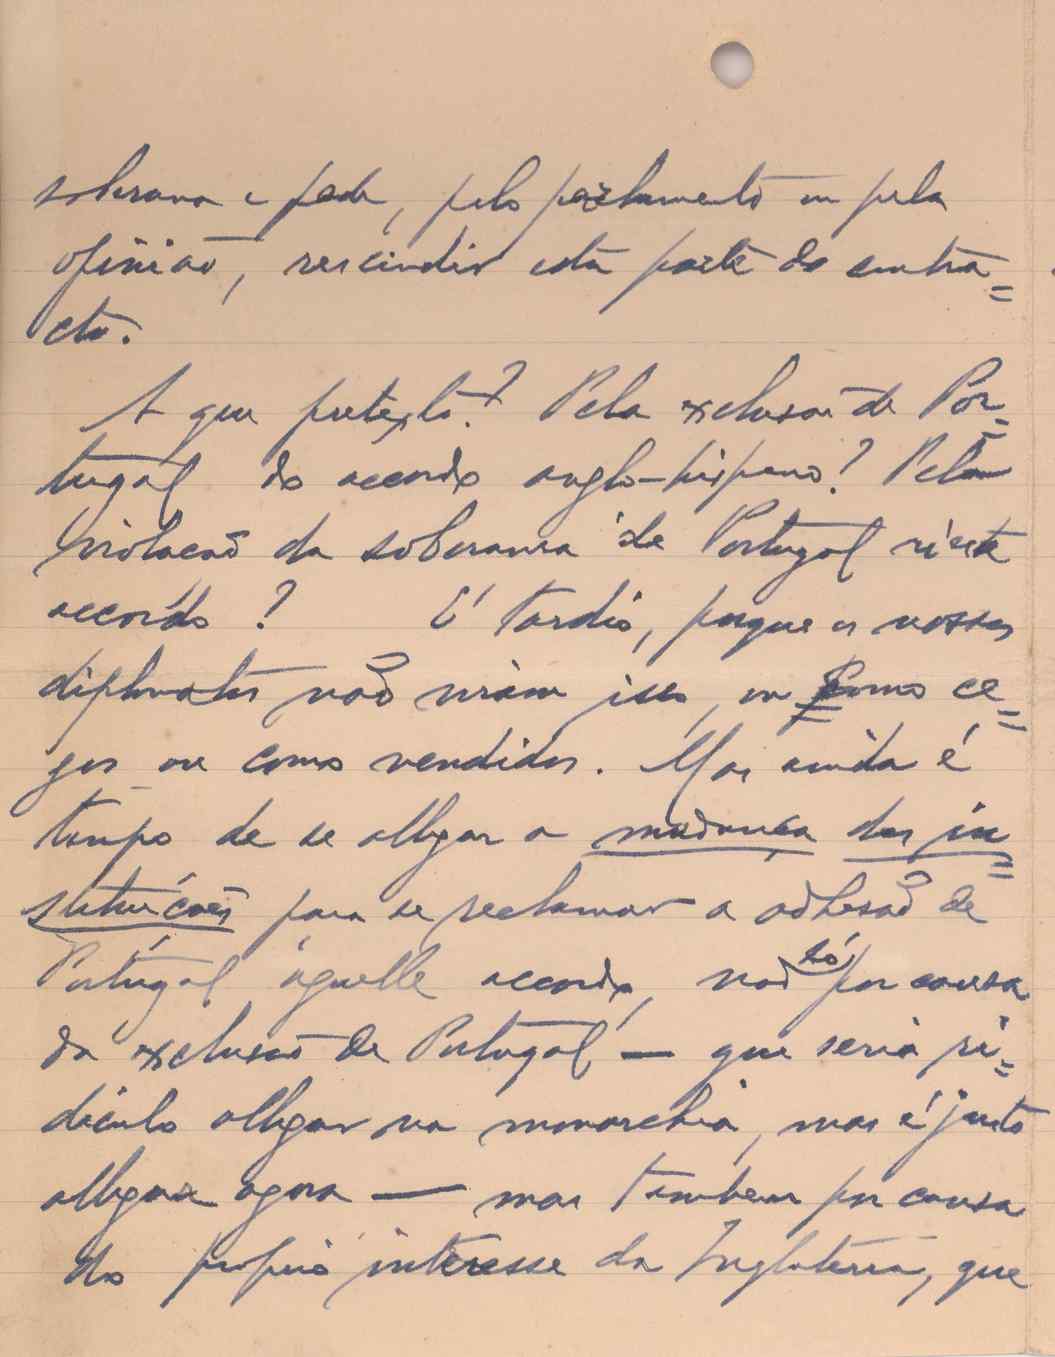 soberana e pede, pelo parlamento ou pela
opinião, rescindir esta parte do contra=
cto.
A que pretexto? Pela exclusão de Por=
tugal do accordo anglo-hispano? Pela
violação da soberania de Portugal n'este
accordo? É tardio, porque os nossos
diplomatas não viram isso, ou como ce=
gos ou como vendidos. Mas ainda é
tempo de se allegar a mudança das in=
stituições para se reclamar a adhesão de
Portugal áquelle accordo, não só por causa
da exclusão de Portugal — que seria ri=
diculo allegar na monarchia, mas é justo
allegar agora — mas tambem por causa
do proprio interesse da Inglaterra, que